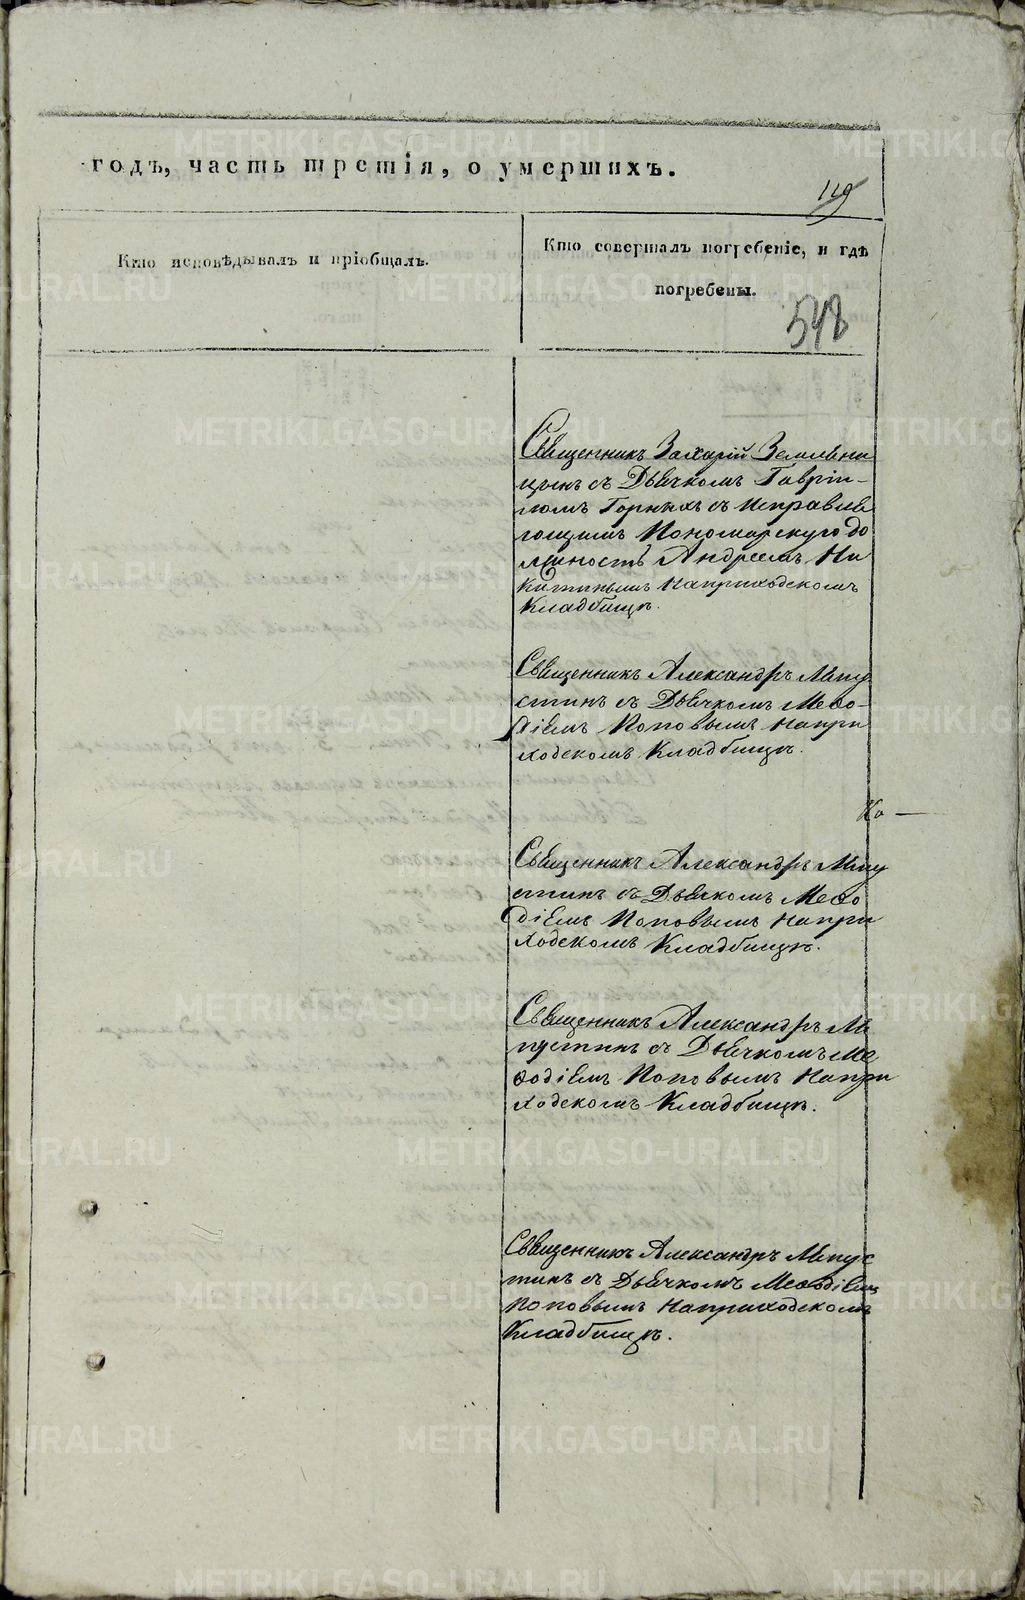 годъ, часть третія, о умершихъ.
119
Кто исповѣдывалъ и пріобщалъ.
Кто совершалъ погребеніе, и гдѣ
погребены.
548
Священникъ Захарій Земляни
цынъ съ Дьячкомъ Гавріи-
ломъ Горныхъ съ Исправля
ющимъ Пономарскую до
лжность Андреемъ Ни
китинымъ наприходскомъ
Кладбищѣ.
Священникъ Александръ Мпу
стинъ съ Дьячкомъ Меѳо-
діемъ Поповымъ напри
ходскомъ Кладбищѣ.
Ко —
Священникъ Александръ
стинъ съ Дьячкомъ Меѳо
діемъ Поповымъ напри
ходскомъ Кладбищѣ.
Священникъ Александръ
пустинъ съ Дьячкомъ Ме
ѳодіемъ Поповымъ напри
ходскомъ Кладбищѣ.
Священникъ Александръ
тинъ съ Дьячкомъ Меѳодіемъ
Поповымъ наприходскомъ
Кладбищѣ.
METRIKI.GASO-URAL.RU